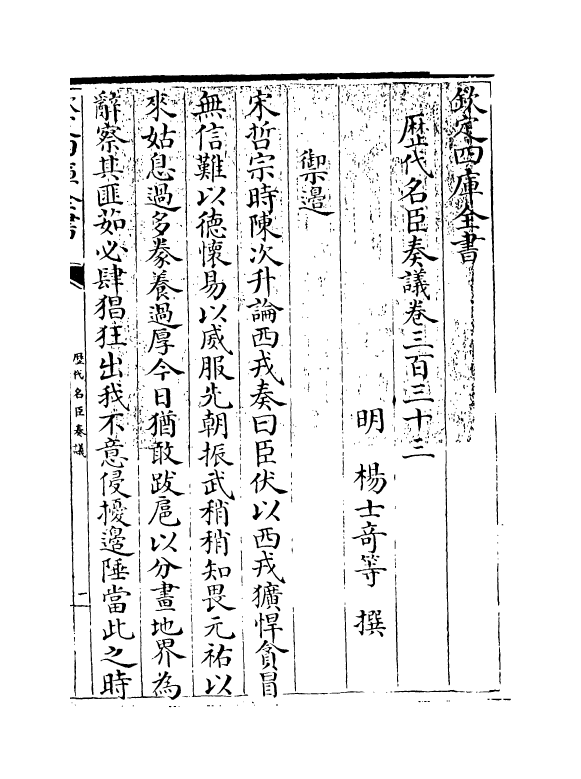 欽定四庫全書
歴代名臣奏議卷三百三十三
明 楊士奇等 撰
禦邊
宋哲宗時陳次升論西戎奏曰臣伏以西戎獷悍貪冒
無信難以德懷易以威服先朝振武稍稍知畏元祐以
來姑息過多豢養過厚今日猶敢跋扈以分畫地界為
辭察其匪茹必肆猖狂出我不意侵擾邊陲當此之時
歴代名臣奏議
一